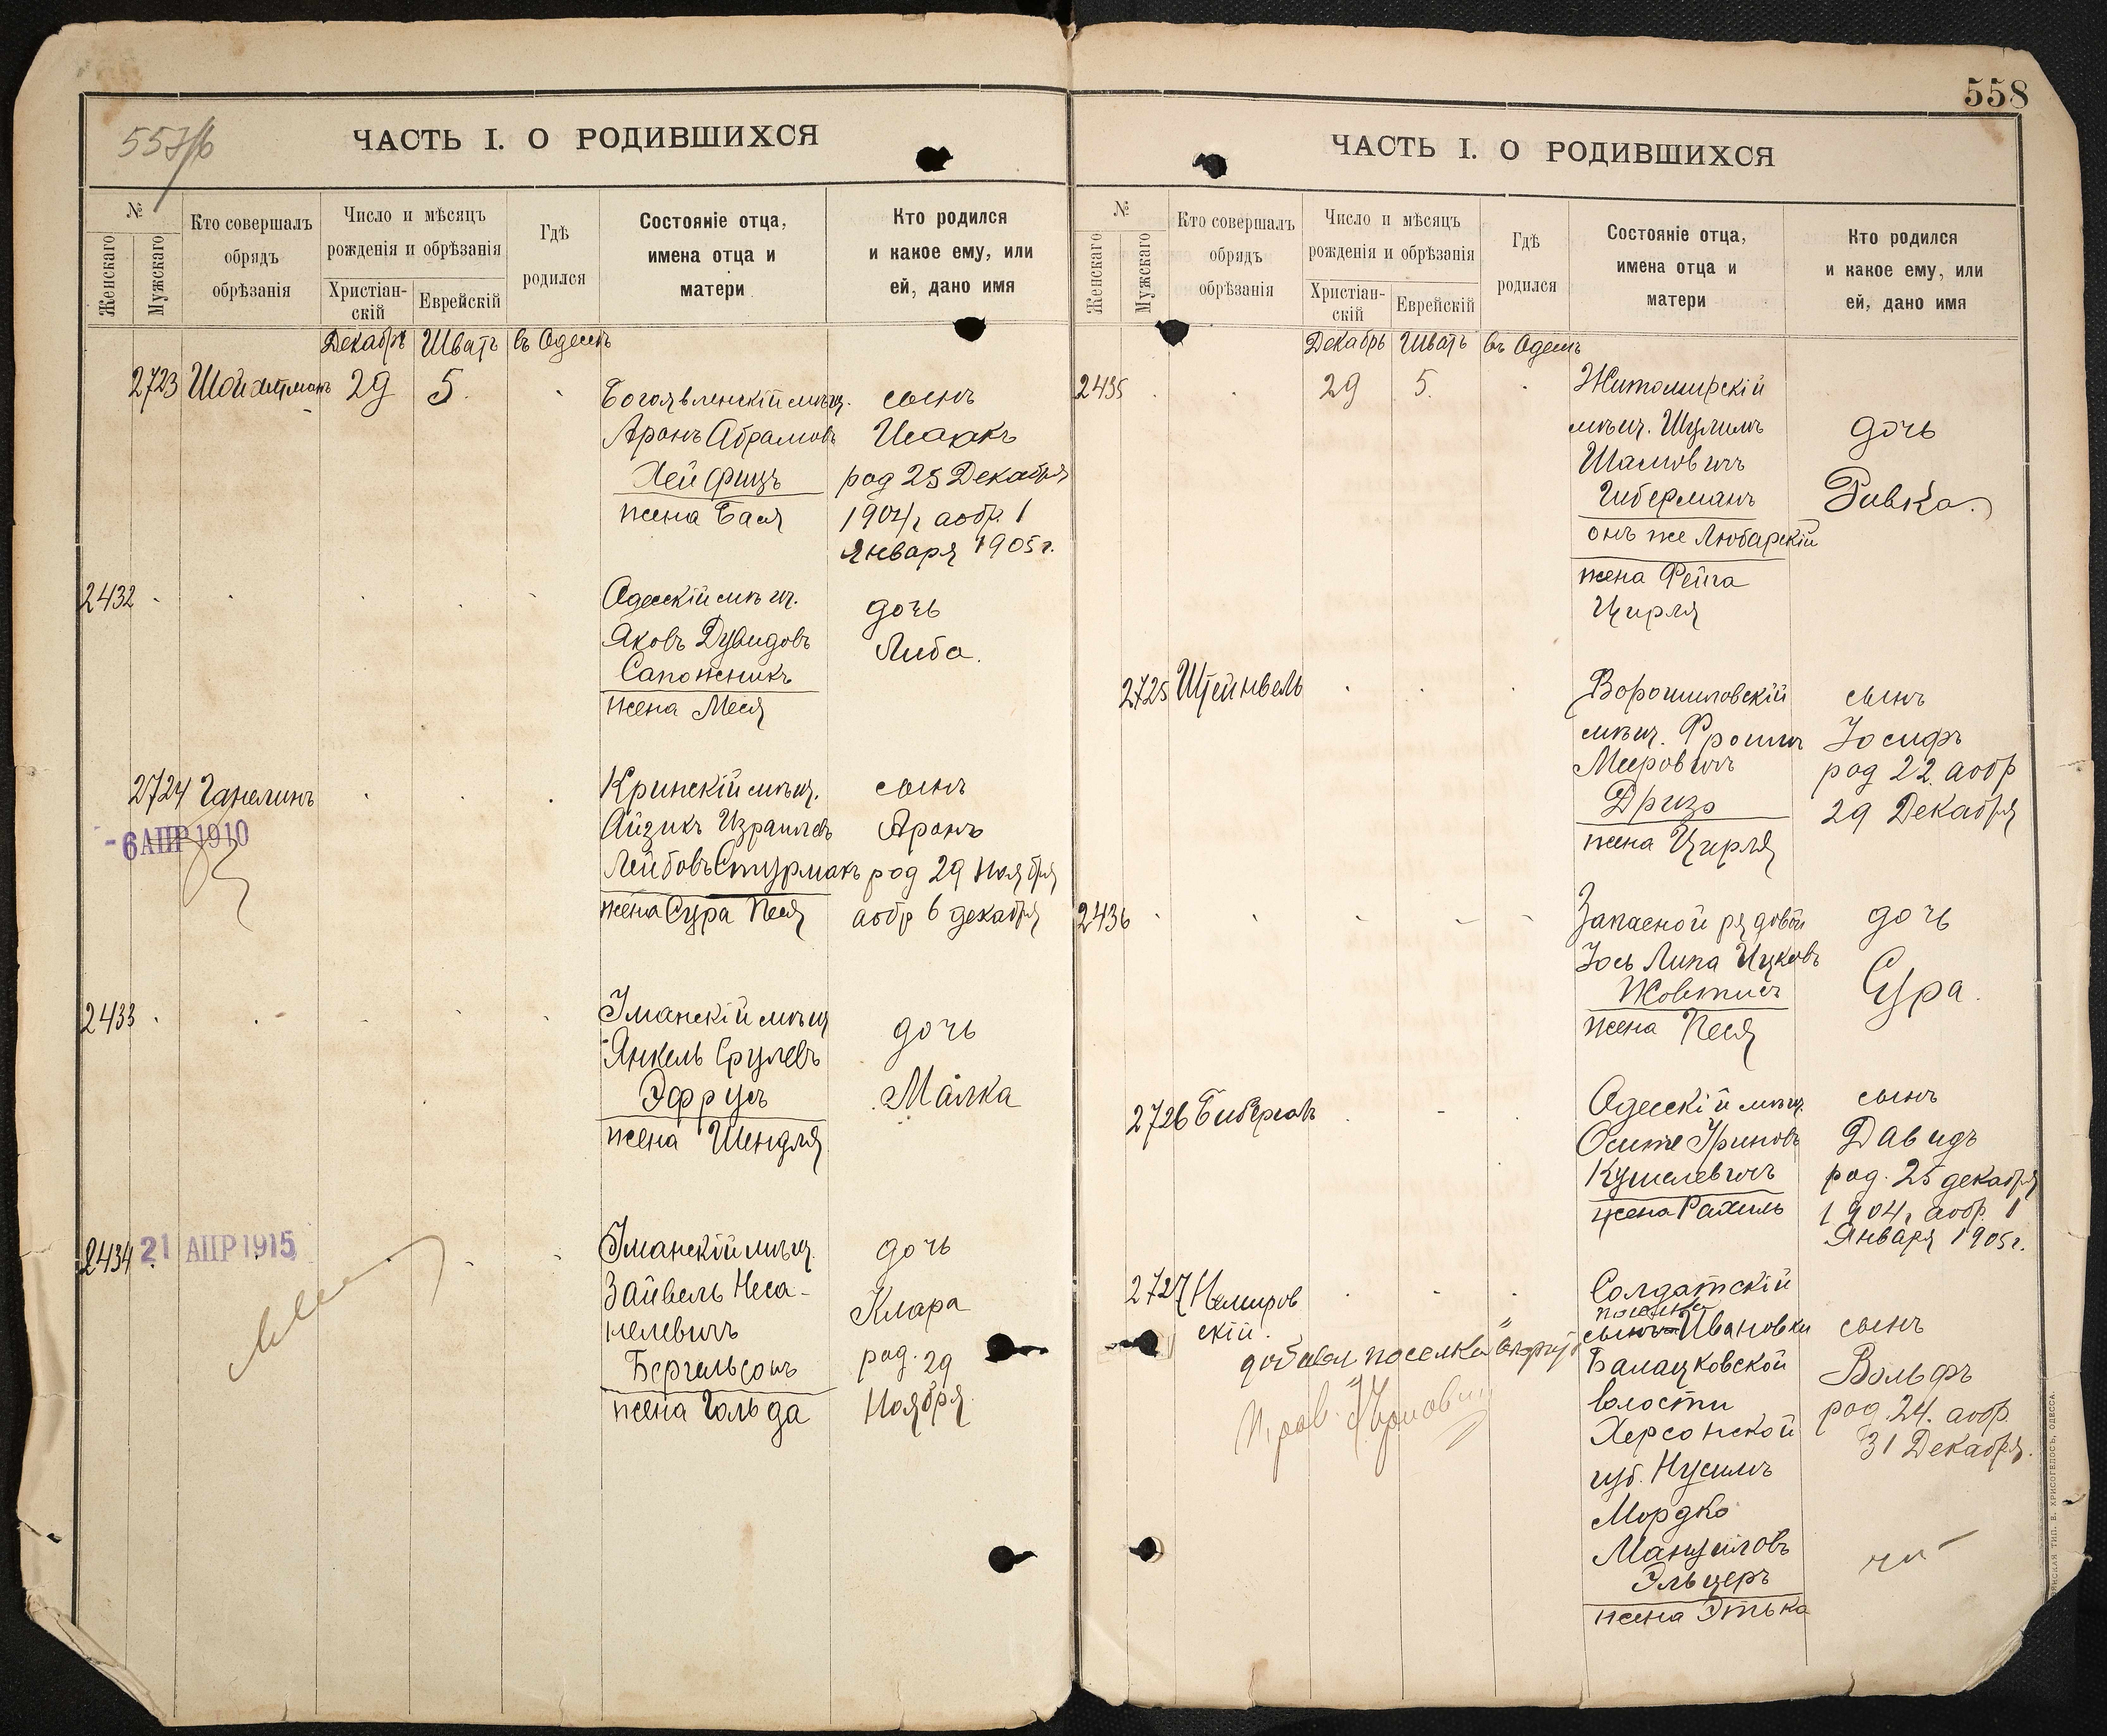 557/б
ЧАСТЬ I. О РОДИВШИХСЯ
№
Женскаго
Мужскаго
Кто совершалъ
обрядъ
обрѣзанія
Число и мѣсяцъ
рожденія и обрѣзанія
Христіан-
скій
Еврейскій
Гдѣ
родился
Состояніе отца,
имена отца и
матери
Кто родился
и какое ему, или
ей, дано имя
Декабрь Шватъ въ Одессѣ
2723 Шойхетманъ 29 5.
Богоявленскій мѣщ.
Аронъ Абрамовъ
Хейфицъ
жена Бася
сынъ
Исаакъ
род 25 Декабря
1904 г. а обр. 1
Января 1905 г.
2432
Одесскій мѣщ.
Яковъ Дувидовъ
Сапожникъ
жена Меся
дочь
Либа.
2724 Ганелинъ
-6 АПР 1910
Кринскій мѣщ.
Айзикъ Израилевъ
Лейбовъ Стурмакъ
жена Сура Песя
сынъ
Аронъ
род 29 Ноября
а обр 6 декабря
2433
Уманскій мѣщ
Янкель Срулевъ
Эфрусъ
жена Шендля
дочь
Малка
2434
21 АПР 1915
Уманскій мѣщ.
Зайвель Неса-
нелевичъ
Бергельсонъ
жена Гольда
дочь
Клара
род. 29
Ноября
558
ЧАСТЬ I. О РОДИВШИХСЯ
№
Женскаго
Мужскаго
Кто совершалъ
обрядъ
обрѣзанія
Число и мѣсяцъ
рожденія и обрѣзанія
Христіан-
скій
Еврейскій
Гдѣ
родился
Состояніе отца,
имена отца и
матери
Кто родился
и какое ему, или
ей, дано имя
Декабрь Шватъ въ Одессѣ
2435 29 5.
Житомирскій
мѣщ. Шулимъ
Шамовичъ
Гиберманъ
онъ же Любарскій
жена Фейга
Цирля
дочь
Ривка.
2725 Штейнвель
Ворошиловскій
мѣщ. Фроимъ
Мееровичъ
Дризъ
жена Цирля
сынъ
Іосифъ
род 22 а обр
29 Декабря
2436
Запасной рядовой
Іось Липа Ицковъ
Жовтисъ
жена Песя
дочь
Сура.
2726 Бибергалъ
Одесскій мѣщ.
Осипъ Уриновъ
Кушелевичъ
жена Рахиль
сынъ
Давидъ
род. 25 декабря
1904 г. а обр. 1
Января 1905 г.
2727 Немиров
скій.
Солдатскій
поселка
сынъ Ивановки
Балацковской
волости
Херсонской
губ. Нусимъ
Мордко
Манусиловъ
Эльцеръ
жена Этька
сынъ
Вольфъ
род. 24. а обр.
31 Декабря.